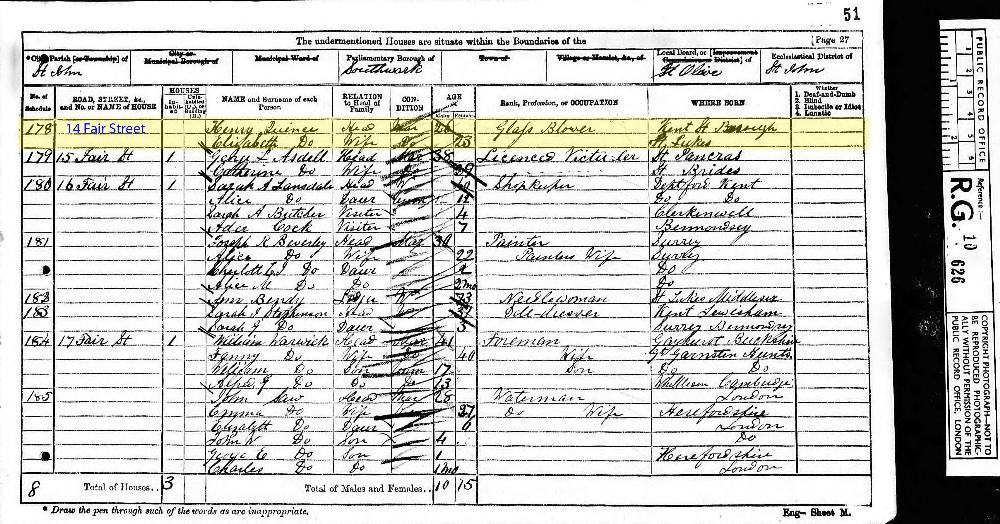 51
The undermentioned Houses are situate within the Boundaries of the
Page 27
*City Parish [or Township] of
City or Municipal Borough of
Municipal Ward of
Parliamentary Borough of
Town of
Village or Hamlet, &c., of
Local Board, or [Improvement Commissioners District] of
Ecclesiastical District of
St John Southwark St Olive St John
No. of Schedule
ROAD, STREET, &c., and No. or NAME of HOUSE
HOUSES
NAME and Surname of each Person
RELATION to Head of Family
CONDITION
AGE
Males Females
Rank, Profession, or OCCUPATION
WHERE BORN
Whether
1. Deaf-and-Dumb
2. Blind
3. Imbecile or Idiot
4. Lunatic
178 14 Fair Street Henry Head Mar 26 Glass Blower Kent St Borough
Elizabeth Do Wife Do 23 St Lukes
179 15 Fair St 1 L Asdell Head Mar 38 Licenced St Pancras
Catherine Do Wife St Brides
180 16 Fair St 1 Sarah A Lansdale Head W 40 Shipkeeper Deptford Kent
Alice Do Daur 11 Do Do
Sarah A Butcher Visiter 4 Clerkenwell
Ader Cock Visiter 7 Bermondsey
181 Joseph R Beverley Head Mar 30 Painter Surrey
Alice Do Wife 22 Painters Wife Surrey
Do Daur Do
Alice M Do Do 2mo Do
182 Ann Bendy Needlewoman St Lukes Middlesex
183 Sarah J Stephenson Head Kent Lewisham
Sarah J Do Daur 3 Surrey Bermondsey
184 17 Fair St 1 William Warwick Head Mar 41 Foreman
Fanny Do Wife Do 40 Wife Hunts
William Do Son 17 Son Do Do
Do Do 13 Cambridge
185 John Head Mar 28 Waterman London
Emma Do Wife 27 Do Wife Herefordshire
Elizabeth Do Daur 6 London
John W Do Son 4 Do
George Do Son 1 Herefordshire
Charles Do Do 1mo London
8 Total of Houses.. 3 Total of Males and Females.. 10 15
* Draw the pen through such of the words as are inappropriate.
Eng— Sheet M.
PUBLIC RECORD OFFICE
1 2 3 4 5 6
Reference :—
R.G. 10 626
COPYRIGHT PHOTOGRAPH—NOT TO
BE REPRODUCED PHOTOGRAPHIC-
ALLY WITHOUT PERMISSION OF THE
PUBLIC RECORD OFFICE, LONDON